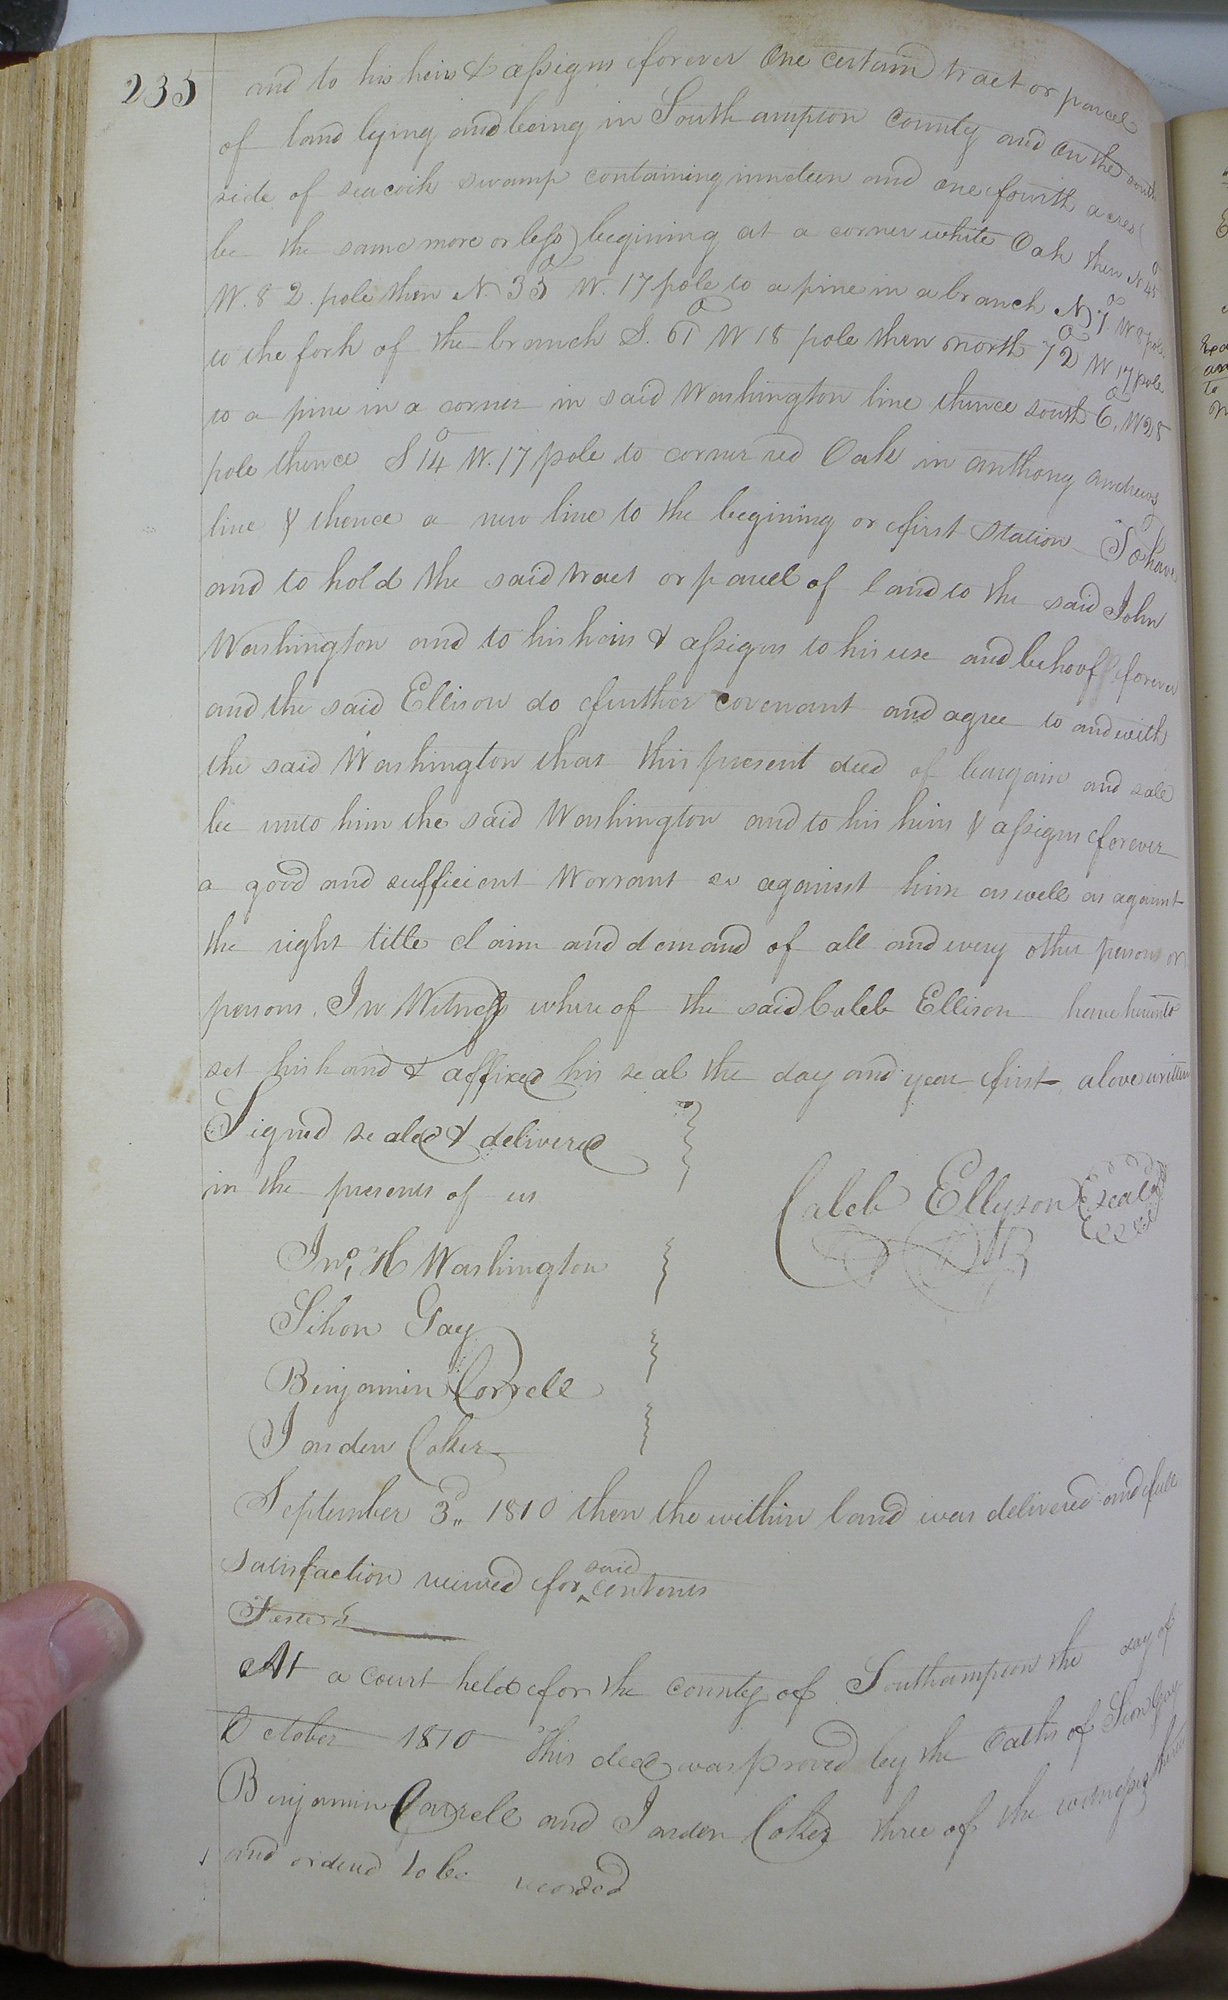 235
and to his heirs & assigns forever One certain tract or parcel
of land lying and being in Southampton County and on the south
side of seacoik swamp containing nineteen and one fourth acres (
be the same more or less) begining at a corner white Oak then N 45°
W. 82. pole then N. 35° W. 17 pole to a pine in a branch N 1° W 8 pole
to the fork of the branch S. 61° W 18 pole then north 72° W 17 pole
to a pine in a corner in said Washington line thence south 6° W 28
pole thence S 14° W. 17 pole to corner red Oak in anthony andrews
line & thence a new line to the begining or first Station To have
and to hold the said tract or parcel of land to the said John
Washington and to his heirs & assigns to his use and behoof forever
and the said Ellison do further covenant and agree to and with
the said Washington that this present deed of bargain and sale
be unto him the said Washington and to his heirs & assigns forever
a good and sufficient Worrant as against him as well as against
the right title claim and demand of all and every other persons or
persons. In Witness where of the said Caleb Ellison have hereunto
set his hand & affixed his seal the day and year first above written
Signed sealed & delivered
in the presents of us
Caleb Ellyson (seal)
Jno, H Washington
Sihon Gay
Benjamin Correll
Jorden Coker
September 3d, 1810 then the within land was delivered and full
satisfaction received for said contents
Teste
At a court held for the county of Southampton the day of
October 1810 This deed was proved by the Oaths of Sion Gay
Benjamin Carrell and Jorden Coker three of the witnesses thereto
and ordered to be recorded